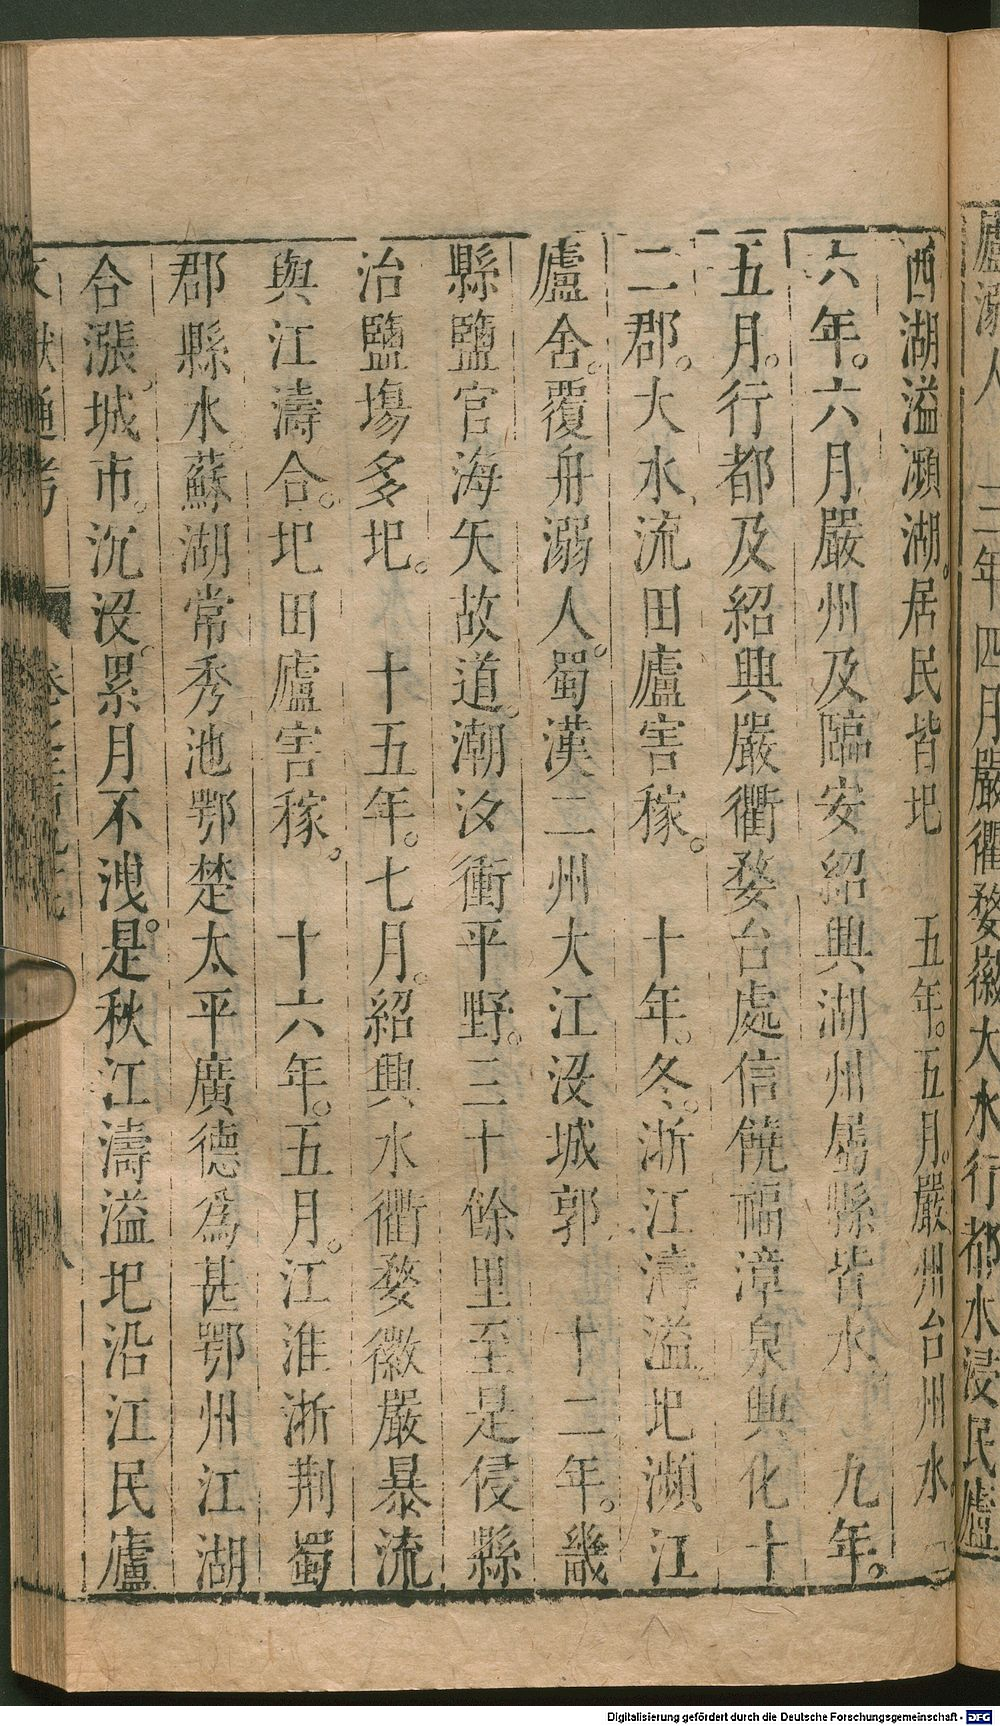 廬溺人　三年四月嚴衢婺徽大水行都水浸民廬
西湖溢瀕湖。居民皆圯　五年。五月。嚴州台州水。
六年。六月嚴州及臨安紹興湖州屬縣皆水。九年。
五月。行都及紹興嚴衢婺台處信饒福漳泉興化十
二郡。大水流田廬害稼。　十年。冬。浙江濤溢。圯瀕江
廬舍。覆舟溺人。蜀漢二州大江沒城郭　十二年。畿
縣鹽官海失故道。潮汐衝平野。三十餘里至是侵縣
治鹽塲多圯。　十五年。七月。紹興水衢婺徽嚴暴流
與江濤合。圯田廬害稼。　十六年。五月。江淮浙荆蜀
郡縣水。蘇湖常秀池鄂楚太平廣德爲甚鄂州江湖
合漲。城市。沉沒。累月不洩。是秋江濤溢圯沿江民廬
文獻通考
Digitalisierung gefördert durch die Deutsche Forschungsgemeinschaft - DFG